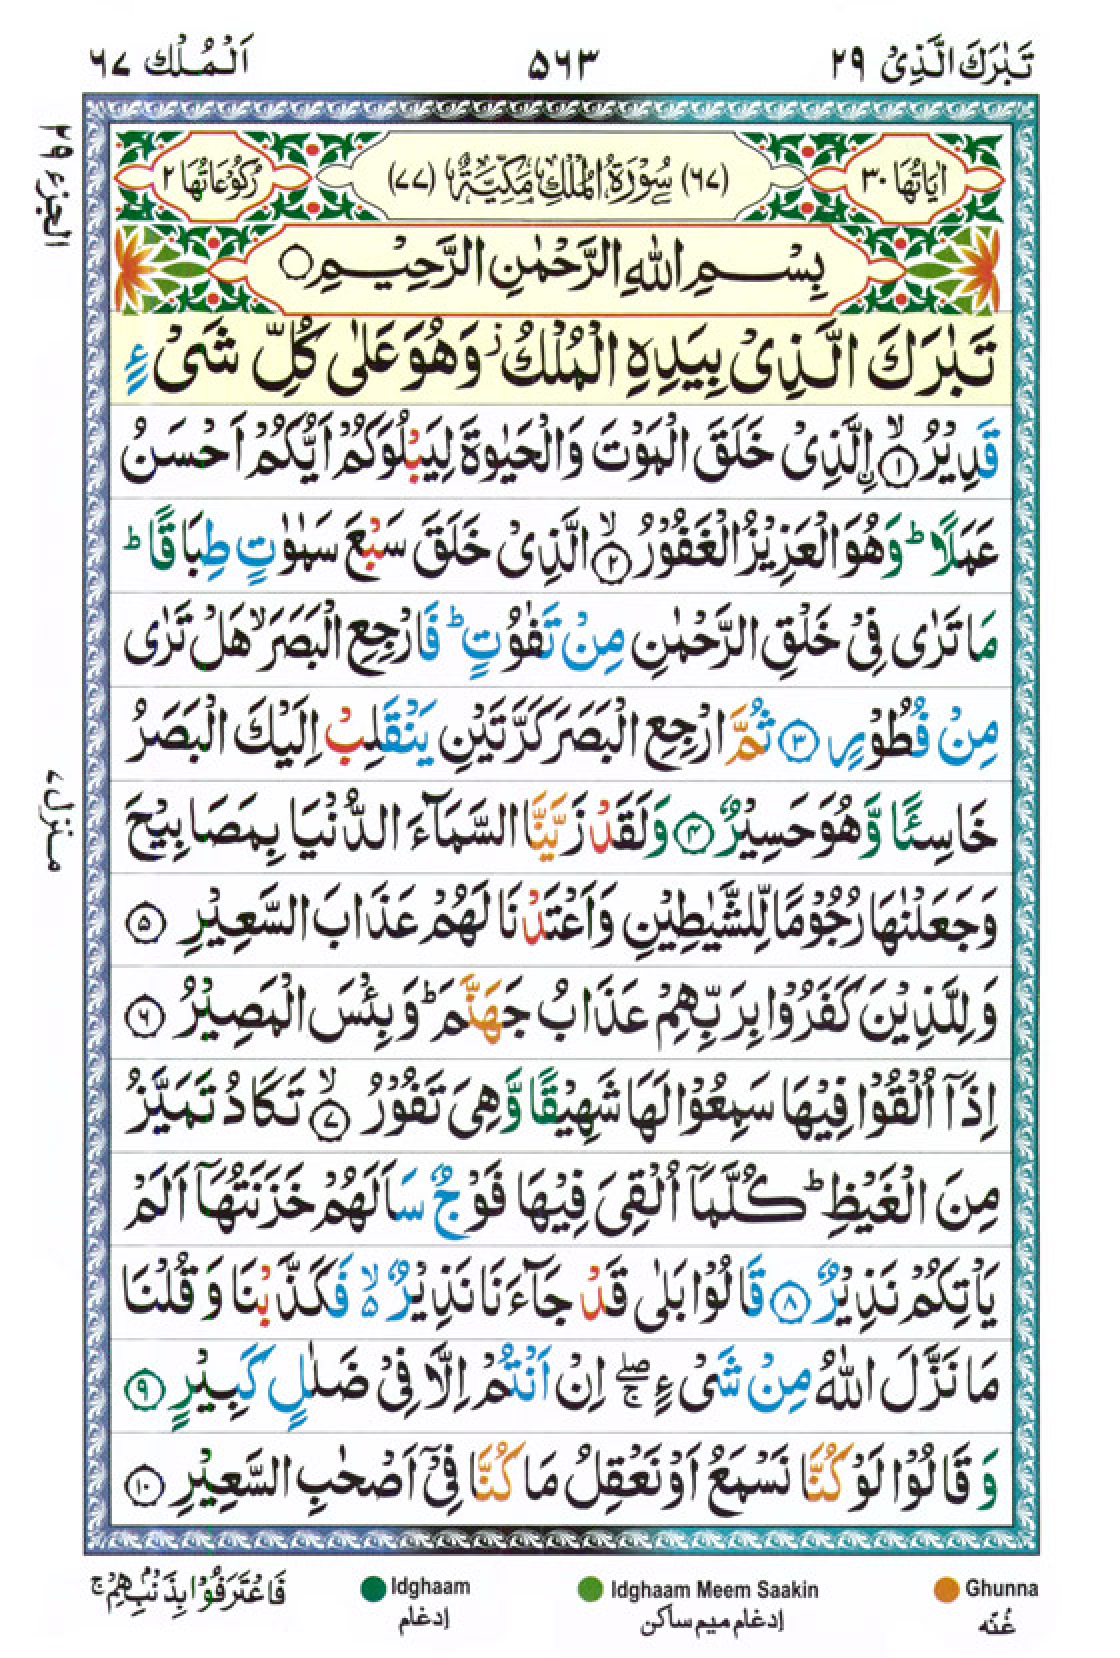 تَبٰرَكَ الَّذِیْ ٢٩
٥٦٣
اَلْمُلْك ٦٧
الجزء ٢٩
اٰيَاتُهَا ٣٠
(٦٧) سُوْرَةُ الْمُلْكِ مَكِّيَّةٌ (٧٧)
رُكُوْعَاتُهَا ٢
بِسْمِ اللّٰهِ الرَّحْمٰنِ الرَّحِیْمِ ۝
تَبٰرَكَ الَّذِیْ بِیَدِهِ الْمُلْكُ ؗ وَهُوَ عَلٰی كُلِّ شَیْءٍ
قَدِیْرُ ۙ‏﴿١﴾ اِ۟لَّذِیْ خَلَقَ الْمَوْتَ وَالْحَیٰوةَ لِیَبْلُوَكُمْ اَیُّكُمْ اَحْسَنُ
عَمَلًا ؕ وَهُوَ الْعَزِیْزُ الْغَفُوْرُ ۙ﴿٢﴾ الَّذِیْ خَلَقَ سَبْعَ سَمٰوٰتٍ طِبَاقًا ؕ
مَا تَرٰی فِیْ خَلْقِ الرَّحْمٰنِ مِنْ تَفٰوُتٍ ؕ فَارْجِعِ الْبَصَرَ ۙ هَلْ تَرٰی
مِنْ فُطُوْرٍ ﴿٣﴾ ثُمَّ ارْجِعِ الْبَصَرَ كَرَّتَیْنِ یَنْقَلِبْ اِلَیْكَ الْبَصَرُ
خَاسِئًا وَّهُوَ حَسِیْرٌ ﴿٤﴾ وَلَقَدْ زَیَّنَّا السَّمَآءَ الدُّنْیَا بِمَصَابِیْحَ
وَجَعَلْنٰهَا رُجُوْمًا لِّلشَّیٰطِیْنِ وَاَعْتَدْنَا لَهُمْ عَذَابَ السَّعِیْرِ ﴿٥﴾
وَلِلَّذِیْنَ كَفَرُوْا بِرَبِّهِمْ عَذَابُ جَهَنَّمَ ؕ وَبِئْسَ الْمَصِیْرُ ﴿٦﴾
اِذَاۤ اُلْقُوْا فِیْهَا سَمِعُوْا لَهَا شَهِیْقًا وَّهِیَ تَفُوْرُ ۙ﴿٧﴾ تَكَادُ تَمَیَّزُ
مِنَ الْغَیْظِ ؕ كُلَّمَاۤ اُلْقِیَ فِیْهَا فَوْجٌ سَاَلَهُمْ خَزَنَتُهَاۤ اَلَمْ
یَاْتِكُمْ نَذِیْرٌ ﴿٨﴾ قَالُوْا بَلٰی قَدْ جَآءَنَا نَذِیْرٌ ۙ۬ فَكَذَّبْنَا وَقُلْنَا
مَا نَزَّلَ اللّٰهُ مِنْ شَیْءٍ ۖۚ اِنْ اَنْتُمْ اِلَّا فِیْ ضَلٰلٍ كَبِیْرٍ ﴿٩﴾
وَقَالُوْا لَوْ كُنَّا نَسْمَعُ اَوْ نَعْقِلُ مَا كُنَّا فِیْۤ اَصْحٰبِ السَّعِیْرِ ﴿١٠﴾
منزل ٧
Ghunna
غُنّه
Idghaam Meem Saakin
إدغام ميم ساكن
Idghaam
إدغام
فَاعْتَرَفُوْا بِذَنْۢبِهِمْ ۚ